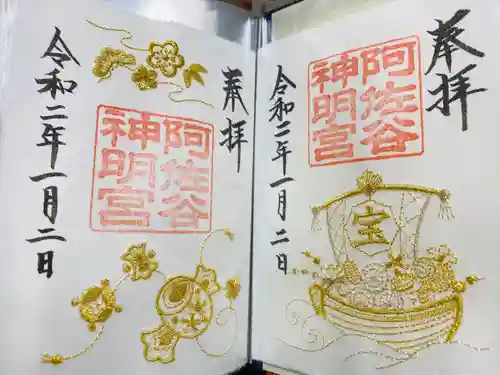 奉拝
阿佐谷
神明宮
令和二年一月二日
奉拝
阿佐谷
神明宮
宝
令和二年一月二日